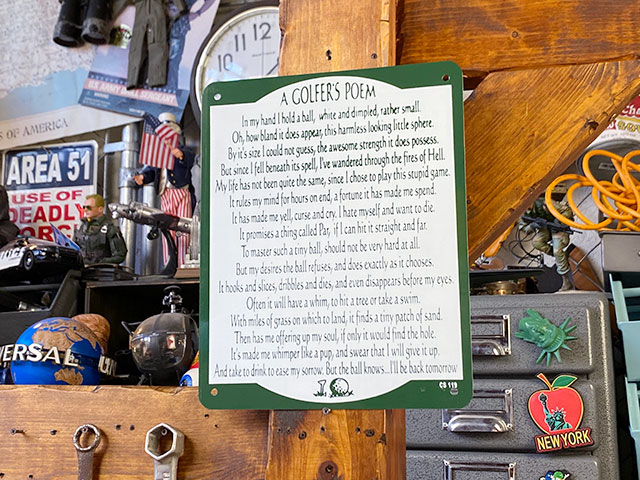 A GOLFER'S POEM
In my hand I hold a ball, white and dimpled, rather small.
Oh, how bland it does appear, this harmless looking little sphere.
By it's size I could not guess, the awesome strength it does possess.
But since I fell beneath its spell, I've wandered through the fires of Hell.
My life has not been quite the same, since I chose to play this stupid game.
It rules my mind for hours on end, a fortune it has made me spend.
It has made me yell, curse and cry. I hate myself and want to die.
It promises a thing called Par, if I can hit it straight and far.
To master such a tiny ball, should not be very hard at all.
But my desires the ball refuses, and does exactly as it chooses.
It hooks and slices, dribbles and dies, and even disappears before my eyes.
Often it will have a whim, to hit a tree or take a swim.
With miles of grass on which to land, it finds a tiny patch of sand.
Then has me offering up my soul, if only it would find the hole.
It's made me whimper like a pup, and swear that I will give it up.
And take to drink to ease my sorrow. But the ball knows...I'll be back tomorrow
CS 119
12
11
10
1
2
U.S. ARMY
S OF AMERICA
AREA 51
USE OF
DEADLY
VERSAL
NEW YORK